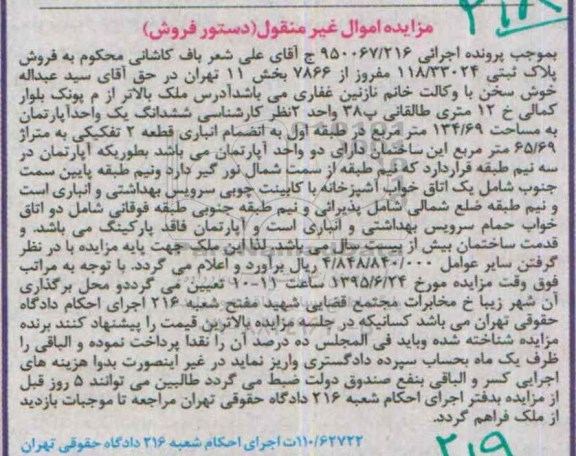 ۲۱۸
مزایده اموال غیر منقول(دستور فروش)
بموجب پرونده اجرائی ۹۵۰۰۶۷/۲۱۶ ج آقای علی شعر باف کاشانی محکوم به فروش
پلاک ثبتی ۱۱۸/۳۳۰۲۴ مفروز از ۷۸۶۶ بخش ۱۱ تهران در حق آقای سید عبداله
خوش سخن با وکالت خانم نازنین غفاری می باشدآدرس ملک بالاتر از م پونک بلوار
کمالی خ ۱۲ متری طالقانی پ۳۸ واحد ۲نظر کارشناسی ششدانگ یک واحدآپارتمان
به مساحت ۱۳۴/۶۹ متر مربع در طبقه اول به انضمام انباری قطعه ۲ تفکیکی به متراژ
۶۵/۶۹ متر مربع این ساختمان دارای دو واحد آپارتمان می باشد بطوریکه آپارتمان در
سه نیم طبقه قراردارد که نیم طبقه از سمت شمال نور گیر دارد ونیم طبقه پایین سمت
جنوب شامل یک اتاق خواب آشپزخانه با کابینت چوبی سرویس بهداشتی و انباری است
و نیم طبقه ضلع شمالی شامل پذیرائی و نیم طبقه جنوبی طبقه فوقانی شامل دو اتاق
خواب حمام سرویس بهداشتی و انباری است و آپارتمان فاقد پارکینگ می باشد. و
قدمت ساختمان بیش از بیست سال می باشد. لذا این ملک جهت پایه مزایده با در نظر
گرفتن سایر عوامل ۴/۸۴۸/۸۴۰/۰۰۰ ریال برآورد و اعلام می گردد. با توجه به مراتب
فوق وقت مزایده مورخ ۱۳۹۵/۶/۲۴ ساعت ۱۱-۱۰ تعیین می گرددو محل برگذاری
آن شهر زیبا خ مخابرات مجتمع قضایی شهید مفتح شعبه ۲۱۶ اجرای احکام دادگاه
حقوقی تهران می باشد کسانیکه در جلسه مزایده بالاترین قیمت را پیشنهاد کنند برنده
مزایده شناخته شده وباید فی المجلس ده درصد آن را نقدا پرداخت نموده و الباقی را
ظرف یک ماه بحساب سپرده دادگستری واریز نماید در غیر اینصورت بدوا هزینه های
اجرایی کسر و الباقی بنفع صندوق دولت ضبط می گردد طالبین می توانند ۵ روز قبل
از مزایده بدفتر اجرای احکام شعبه ۲۱۶ دادگاه حقوقی تهران مراجعه تا موجبات بازدید
از ملک فراهم گردد.
۱۱۰/۶۲۷۲۲ت اجرای احکام شعبه ۲۱۶ دادگاه حقوقی تهران
۲۱۹